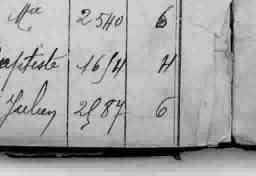 Mce 2540 6
aptiste 1614 4
Julien 2587 6